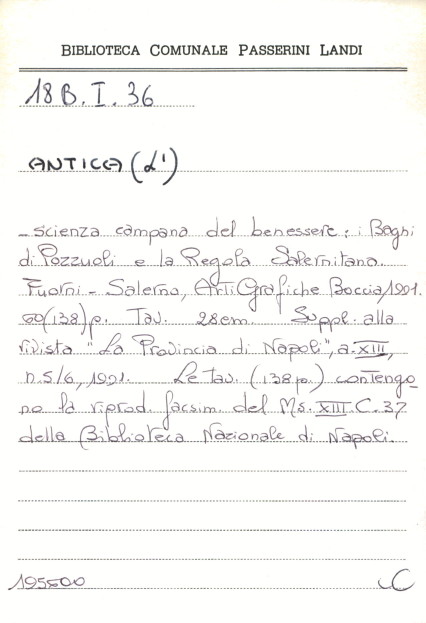 BIBLIOTECA COMUNALE PASSERINI LANDI
18B. I. 36
ANTICA (L')
- scienza campana del benessere: i Bagni
di Pozzuoli e la Regola Salernitana.
Fuorni - Salerno, Arti Grafiche Boccia, 1991.
60 (138) p. Tav. 28cm. Suppl. alla
rivista "La Provincia di Napoli", a. XIII,
n. 5/6, 1991. Le tav. (138 p.) contengo-
no la riprod. facsim. del Ms. XIII. C. 37
della Biblioteca Nazionale di Napoli.
195600
C